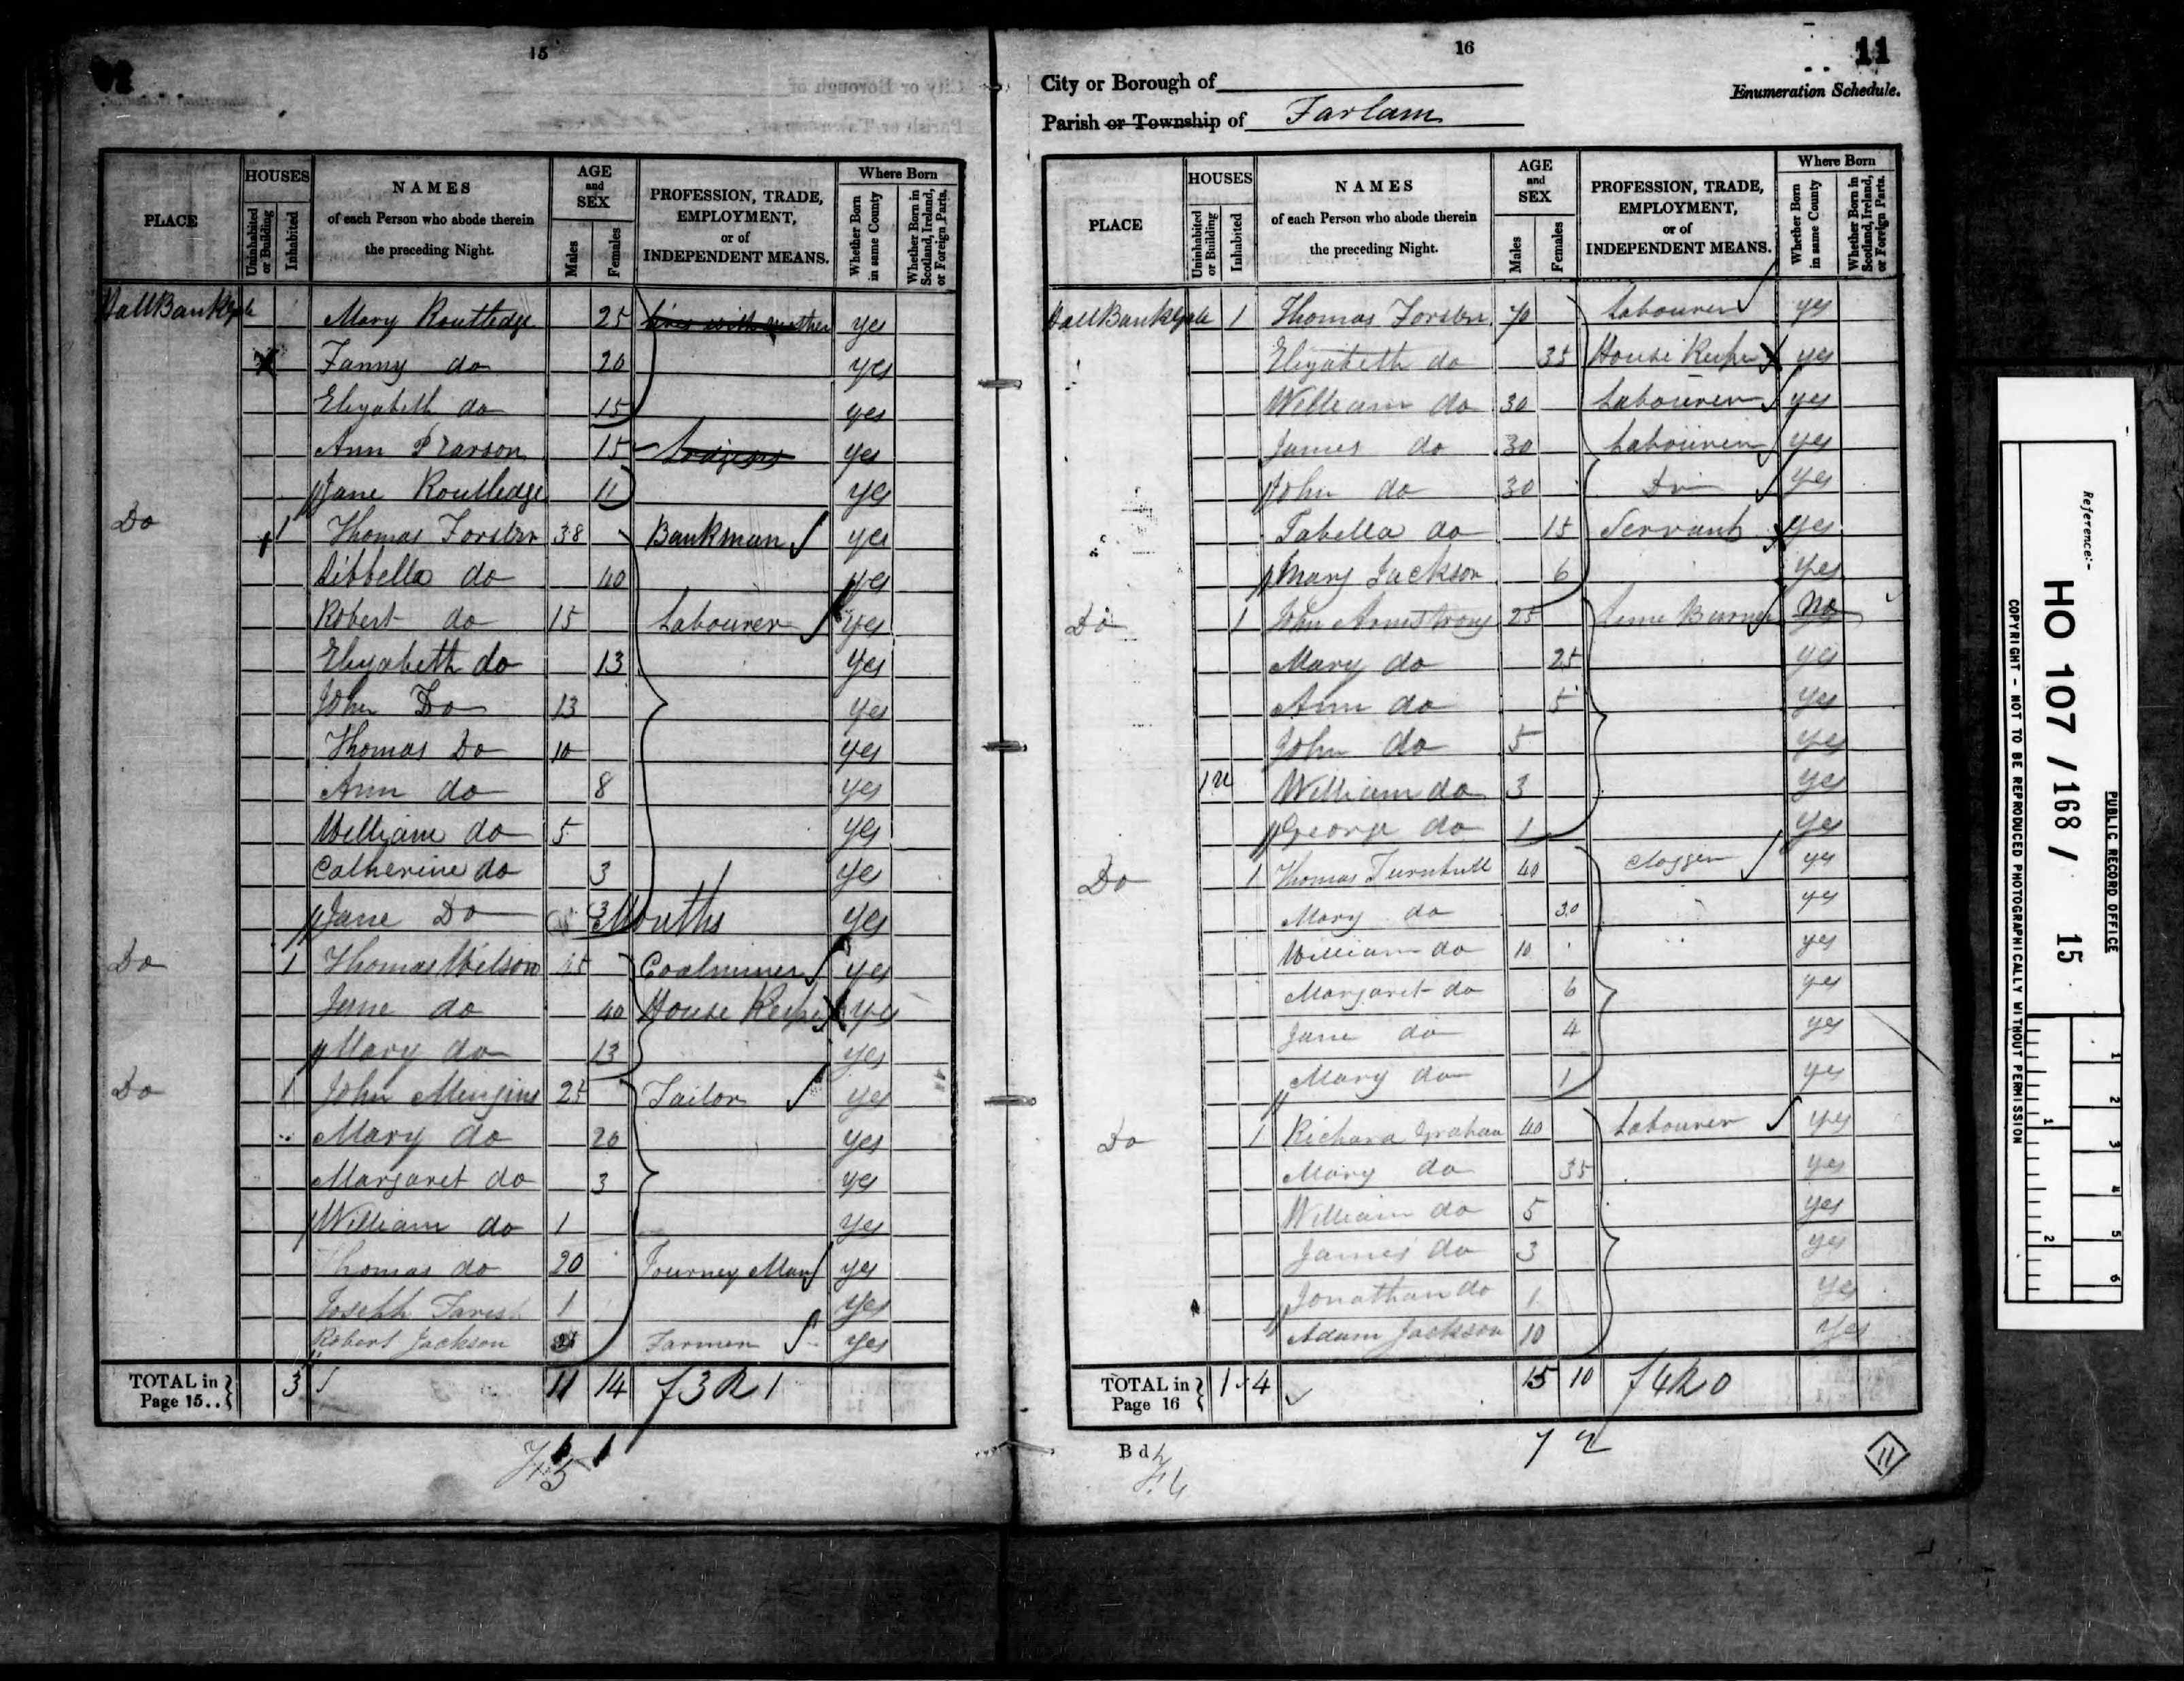 15
HOUSES
AGE and SEX
Where Born
PLACE
Uninhabited or Building
Inhabited
NAMES of each Person who abode therein the preceding Night.
Males
Females
PROFESSION, TRADE, EMPLOYMENT, or of INDEPENDENT MEANS.
Whether Born in same County
Whether Born in Scotland, Ireland, or Foreign Parts.
HallBankgate Mary Routledge 25 yes
Fanny do 20 yes
Elizabeth do 15 yes
Ann Pearson 15 Lodgers yes
Jane Routledge 11 yes
Do 1 Thomas Forster 38 Bankman yes
Sibbella do 40 yes
Robert do 15 Labourer yes
Elizabeth do 13 yes
John Do 13 yes
Thomas Do 10 yes
Ann do 8 yes
William do 5 yes
Catherine do 3 yes
Jane Do 3 Months yes
Do 1 Thomas Wilson 45 Coalminer yes
Jane do 40 House Keeper yes
Mary do 13 yes
Do 1 John 25 Tailor yes
Mary do 20 yes
Margaret do 3 yes
William do 1 yes
Thomas do 20 Journey Man yes
Joseph Farish 1 yes
Robert Jackson Farmer yes
TOTAL in Page 15.. 3 11 14
16
11
City or Borough of
Enumeration Schedule.
Parish or Township of Farlam
HOUSES
AGE and SEX
Where Born
PLACE
Uninhabited or Building
Inhabited
NAMES of each Person who abode therein the preceding Night.
Males
Females
PROFESSION, TRADE, EMPLOYMENT, or of INDEPENDENT MEANS.
Whether Born in same County
Whether Born in Scotland, Ireland, or Foreign Parts.
HallBankgate 1 Thomas Forster 70 Labourer yes
Elizabeth do 35 House Keeper yes
William do 30 Labourer yes
James do 30 Labourer yes
John do 30 Do yes
Tabella do 15 Servant yes
Mary Jackson 6 yes
Do 1 John Armstrong 25 Lime Burner No
Mary do 25 yes
Ann do 5 yes
John do 5 yes
1 u William do 3 yes
George do 1 yes
Do 1 Thomas Turnbull 40 Clogger yes
Mary do 30 yes
William do 10 yes
Margaret do 6 yes
Jane do 4 yes
Mary do 1 yes
Do 1 Richard Graham 40 Labourer yes
Mary do 35 yes
William do 5 yes
James do 3 yes
Jonathan do 1 yes
Adam Jackson 10 yes
TOTAL in Page 16 1 4 15 10
B d
11
Reference:-
HO 107 / 168 / 15
PUBLIC RECORD OFFICE
COPYRIGHT - NOT TO BE REPRODUCED PHOTOGRAPHICALLY WITHOUT PERMISSION
1 2 3 4 5 6
1 2